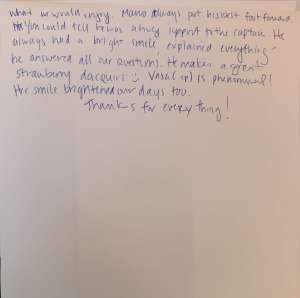 what we would enjoy. Mario always put his best foot forward.
You could tell he was a huge support to the captain. He
always had a bright smile, explained everything -
he answered all our questions. He makes a great
strawberry daquiri :) is phenomenal!
Her smile brightened our days too.
Thanks for everything!